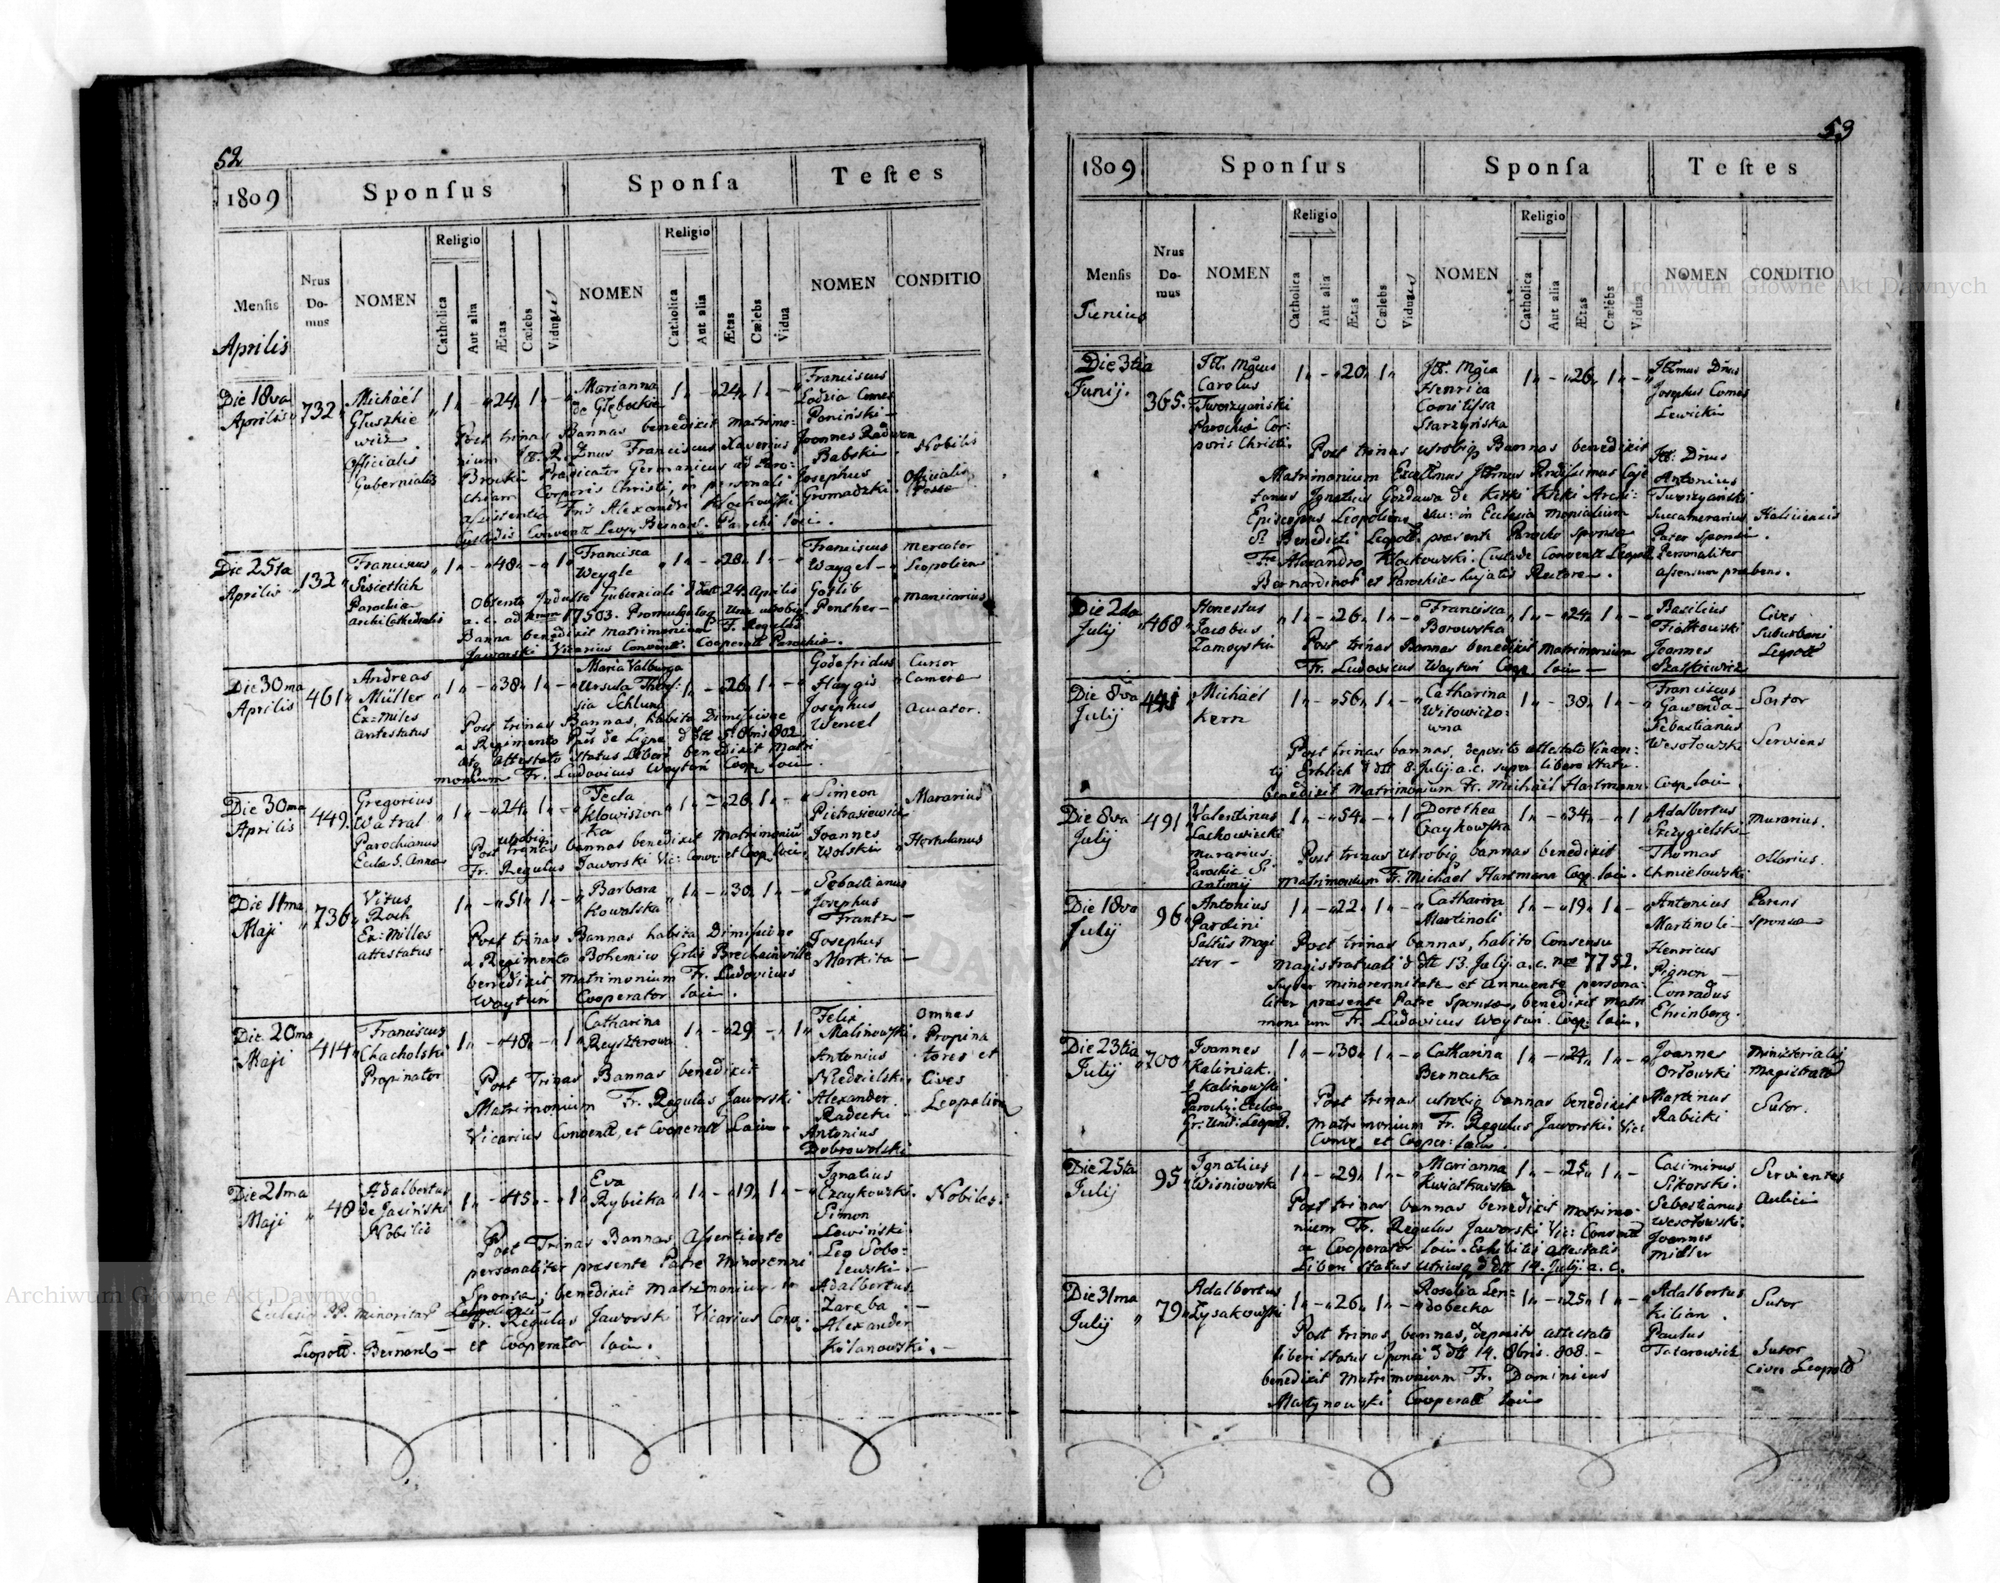 52
1809
Sponsus
Sponsa
Testes
Mensis
Nrus Domus
NOMEN
Religio
Catholica
Aut alia
Ætas
Cælebs
Viduus
NOMEN
Religio
Catholica
Aut alia
Ætas
Cælebs
Vidua
NOMEN
CONDITIO
Aprilis
Die 18va Aprilis
732
Michaël
Głuszkie
wicz
Officialis
Gubernialis
1 - 24 1 -
Marianna
de Głębockie
1 - 24 1 -
Franciscus
Lodzia Comes
Poniński
Joannes Radwan
Babski
Nobilis
Josephus
Gromadzki
Officialis
Postæ
Post trinas Bannas benedixit matrimo-
nium Franciscus Xaverius
Broski Prædicator Germanicus ad Paro-
chiam Corporis Christi, in personali
assistentia Fris Alexandri Klockowski
Custodis Convent Leop Bernard. Parochi loci.
Die 25ta Aprilis
132
Franciscus
Parochiæ
Archi Cathedralis
1 - 48 - 1
Francisca
Weygle
1 - 28 1 -
Franciscus
Waygel
Mercator
Leopolien
Gotlib
Penther
manicarius
Obtento Indulto Guberniali d dtt 24 Aprilis
a. c. ad Nrum 17503. Promulgataq una utrobiq
Banna benedixit matrimonium F. Regulus
Jaworski Vicarius Convent. Cooperatt Parochiæ.
Die 30ma Aprilis
461
Andreas
Müller
Ex-miles
antestatus
1 - 38 1 -
Maria Valburga
Ursula
1 - 26 1 -
Godefridus
Haygis
Josephus
Wencel
Cursor
Cameræ
Post trinas Bannas, habita Dimissione
a Regimento de Ligne d dtt 5 8bris 802.
atq Attestato Status Liberi benedixit Matri
monium Fr. Ludovicus Woytuń Coop loci.
Die 30ma Aprilis
449
Gregorius
Watral
Parochianus
Eccla S. Annæ
1 - 24 1 -
Tecla
Kłowiszow
ka
1 - 26 1 -
Simeon
Pietrasiewicz
Joannes
Wolski
Murarius
Hortulanus
Post trinas utrobiq bannas benedixit matrimoniũ
Fr. Regulus Jaworski Vic: Conv: et Coop loci
Die 14ma Maji
736
Vitus
Roch
Ex-Milles
attestatus
1 - 51 1 -
Barbara
Kowalska
1 - 30 1 -
Sebastianus
Josephus
Frantz
Josephus
Markita
Post trinas Bannas habita Dimissione
a Regimento Bohemico
benedixit matrimonium Fr. Ludovicus
Woytuń Cooperator loci.
Die 20ma Maji
414
Franciscus
Chacholski
Propinator
1 - 48 - 1
Catharina
Reyszterowa
1 - 29 - 1
Felix
Malinowski
Antonius
Niedzielski
Alexander
Radecki
Antonius
Dobrowolski
Omnes
Propina
tores et
Cives
Leopolien
Post Trinas Bannas benedixit
Matrimonium Fr. Regulus Jaworski
Vicarius Convent, et Cooperatt Loci
Die 21ma Maji
48
Adalbertus
de Jasiński
Nobilis
1 - 45 - 1
Eva
Rybicka
1 - 19 1 -
Ignatius
Czaykowski
Simon
Lewiński
Leo Sobo-
lewski
Adalbertus
Zaręba
Alexander
Kilanowski
Nobiles
Post Trinas Bannas Assentiente
personaliter præsente Patre Minorenni
Sponsæ, benedixit matrimonium in
Ecclesia PP. Minoritar Leopoliensi
Fr. Regulus Jaworski Vicarius Conv.
Leopoll. Bernard - et Cooperator loci.
53
1809
Sponsus
Sponsa
Testes
Mensis
Nrus Domus
NOMEN
Religio
Catholica
Aut alia
Ætas
Cælebs
Viduus
NOMEN
Religio
Catholica
Aut alia
Ætas
Cælebs
Vidua
NOMEN
CONDITIO
Junius
Die 3tia Junij.
365
Carolus
Tworzyański
Parochiæ Cor-
poris Christi
1 - 20 1
Henrica
Comitissa
Starzyńska
1 - 26 1 -
Josephus Comes
Lewicki
Antonius
Tworzyański
Succamerarius Haliciensis
Pater Sponsæ
Personaliter
assensum præbens.
Post trinas utrobiq Bannas benedixit
Matrimonium
Ignatius Gozdawa de Archi-
Episcopus Leopoliens in Ecclesia monialium
S. Benedicti Leopoll. præsente Parocho Sponsæ
Fr. Alexandro Klockowski Custode Convent Leopol
Bernardinor et Parochiæ hujatis Rectore.
Die 2da Julij
468
Honestus
Jacobus
Zamoyski
1 - 26 1 -
Francisca
Borowska
1 - 24 1 -
Basilius
Fiałkowski
Joannes
Szaszkiewicz
Cives
Suburbani
Leopoll
Post trinas Bannas benedixit Matrimonium
Fr. Ludovicus Woytuń Coop loci
Die 8va Julij
441
Michaël
Kern
1 - 56 1 -
Catharina
Witowiczo-
wna
1 - 38 1 -
Franciscus
Gaweńda
Sebastianus
Wesołowski
Sartor
Serviens
Post trinas bannas, deposito attestato
Erhlich d dtt 8. Julij a.c. super libero statu.
benedixit matrimonium Fr. Michaël Hartmann Coop. loci.
Die 8va Julij
491
Valentinus
Lachowiecki
murarius.
Parochiæ S.
Antonij
1 - 54 - 1
Dorothea
Czaykowska
1 - 34 - 1
Adalbertus
Szczygielski
Thomas
Chmielowski
Muranius.
Ollarius.
Post trinas utrobiq bannas benedixit
matrimonium Fr. Michaël Hartmann Coop. loci.
Die 18va Julij
96
Antonius
Pardini
Saltus magi
ster
1 - 22 1 -
Catharina
Martinoli
1 - 19 1 -
Antonius
Martinoli
Henricus
Pignon
Conradus
Eheinberg.
Parens
Sponsæ
Post trinas bannas, habito Consensu
Magistratuali d dtt 13. Julij. a. c. nro 7752.
super minorennitate et annuente persona-
liter præsente Patre Sponsæ, benedixit matri
monium Fr. Ludovicus Woytuń. Coop: loci.
Die 23tia Julij
700
Joannes
Kaliniak.
Kalinowski
Parochi: Ecclæ
Gr: Unit: Leopoll.
1 - 30 1 -
Catharina
Bernacka
1 - 24 1 -
Joannes
Orłowski
Martinus
Rabicki
Ministerialis
Magistratus
Sutor.
Post trinas utrobiq bannas benedixit
matrimonium Fr. Regulus Jaworski. Vic:
Conv. et Cooper: loci.
Die 25ta Julij
95
Ignatius
Wisniowski
1 - 29 1 -
Marianna
Kwiatkowska
1 - 25 1 -
Casimirus
Sikorski.
Sebastianus
Wesołowski
Joannes
Miller
Servientes
Aulici
Post trinas bannas benedixit matrimo-
nium Fr. Regulus Jaworski Vic: Convent
ac Cooperator loci. Exhibitis attestatis
Liberi Status utriusq d dtt 14. Julij a. c.
Die 31ma Julij
79
Adalbertus
Łysakowski
1 - 26 1 -
Rosalia Len-
dobecka
1 - 25 1 -
Adalbertus
Kilian
Paulus
Tatarowicz
Sutor
Sutor
Civis Leopold
Post trinas bannas, deposito attestato
liberi status Sponsi d dtt 14. 8bris. 808.
benedixit matrimonium Fr. Dominicus
Martynowski Cooperatt loci
Archiwum Główne Akt Dawnych
Archiwum Główne Akt Dawnych